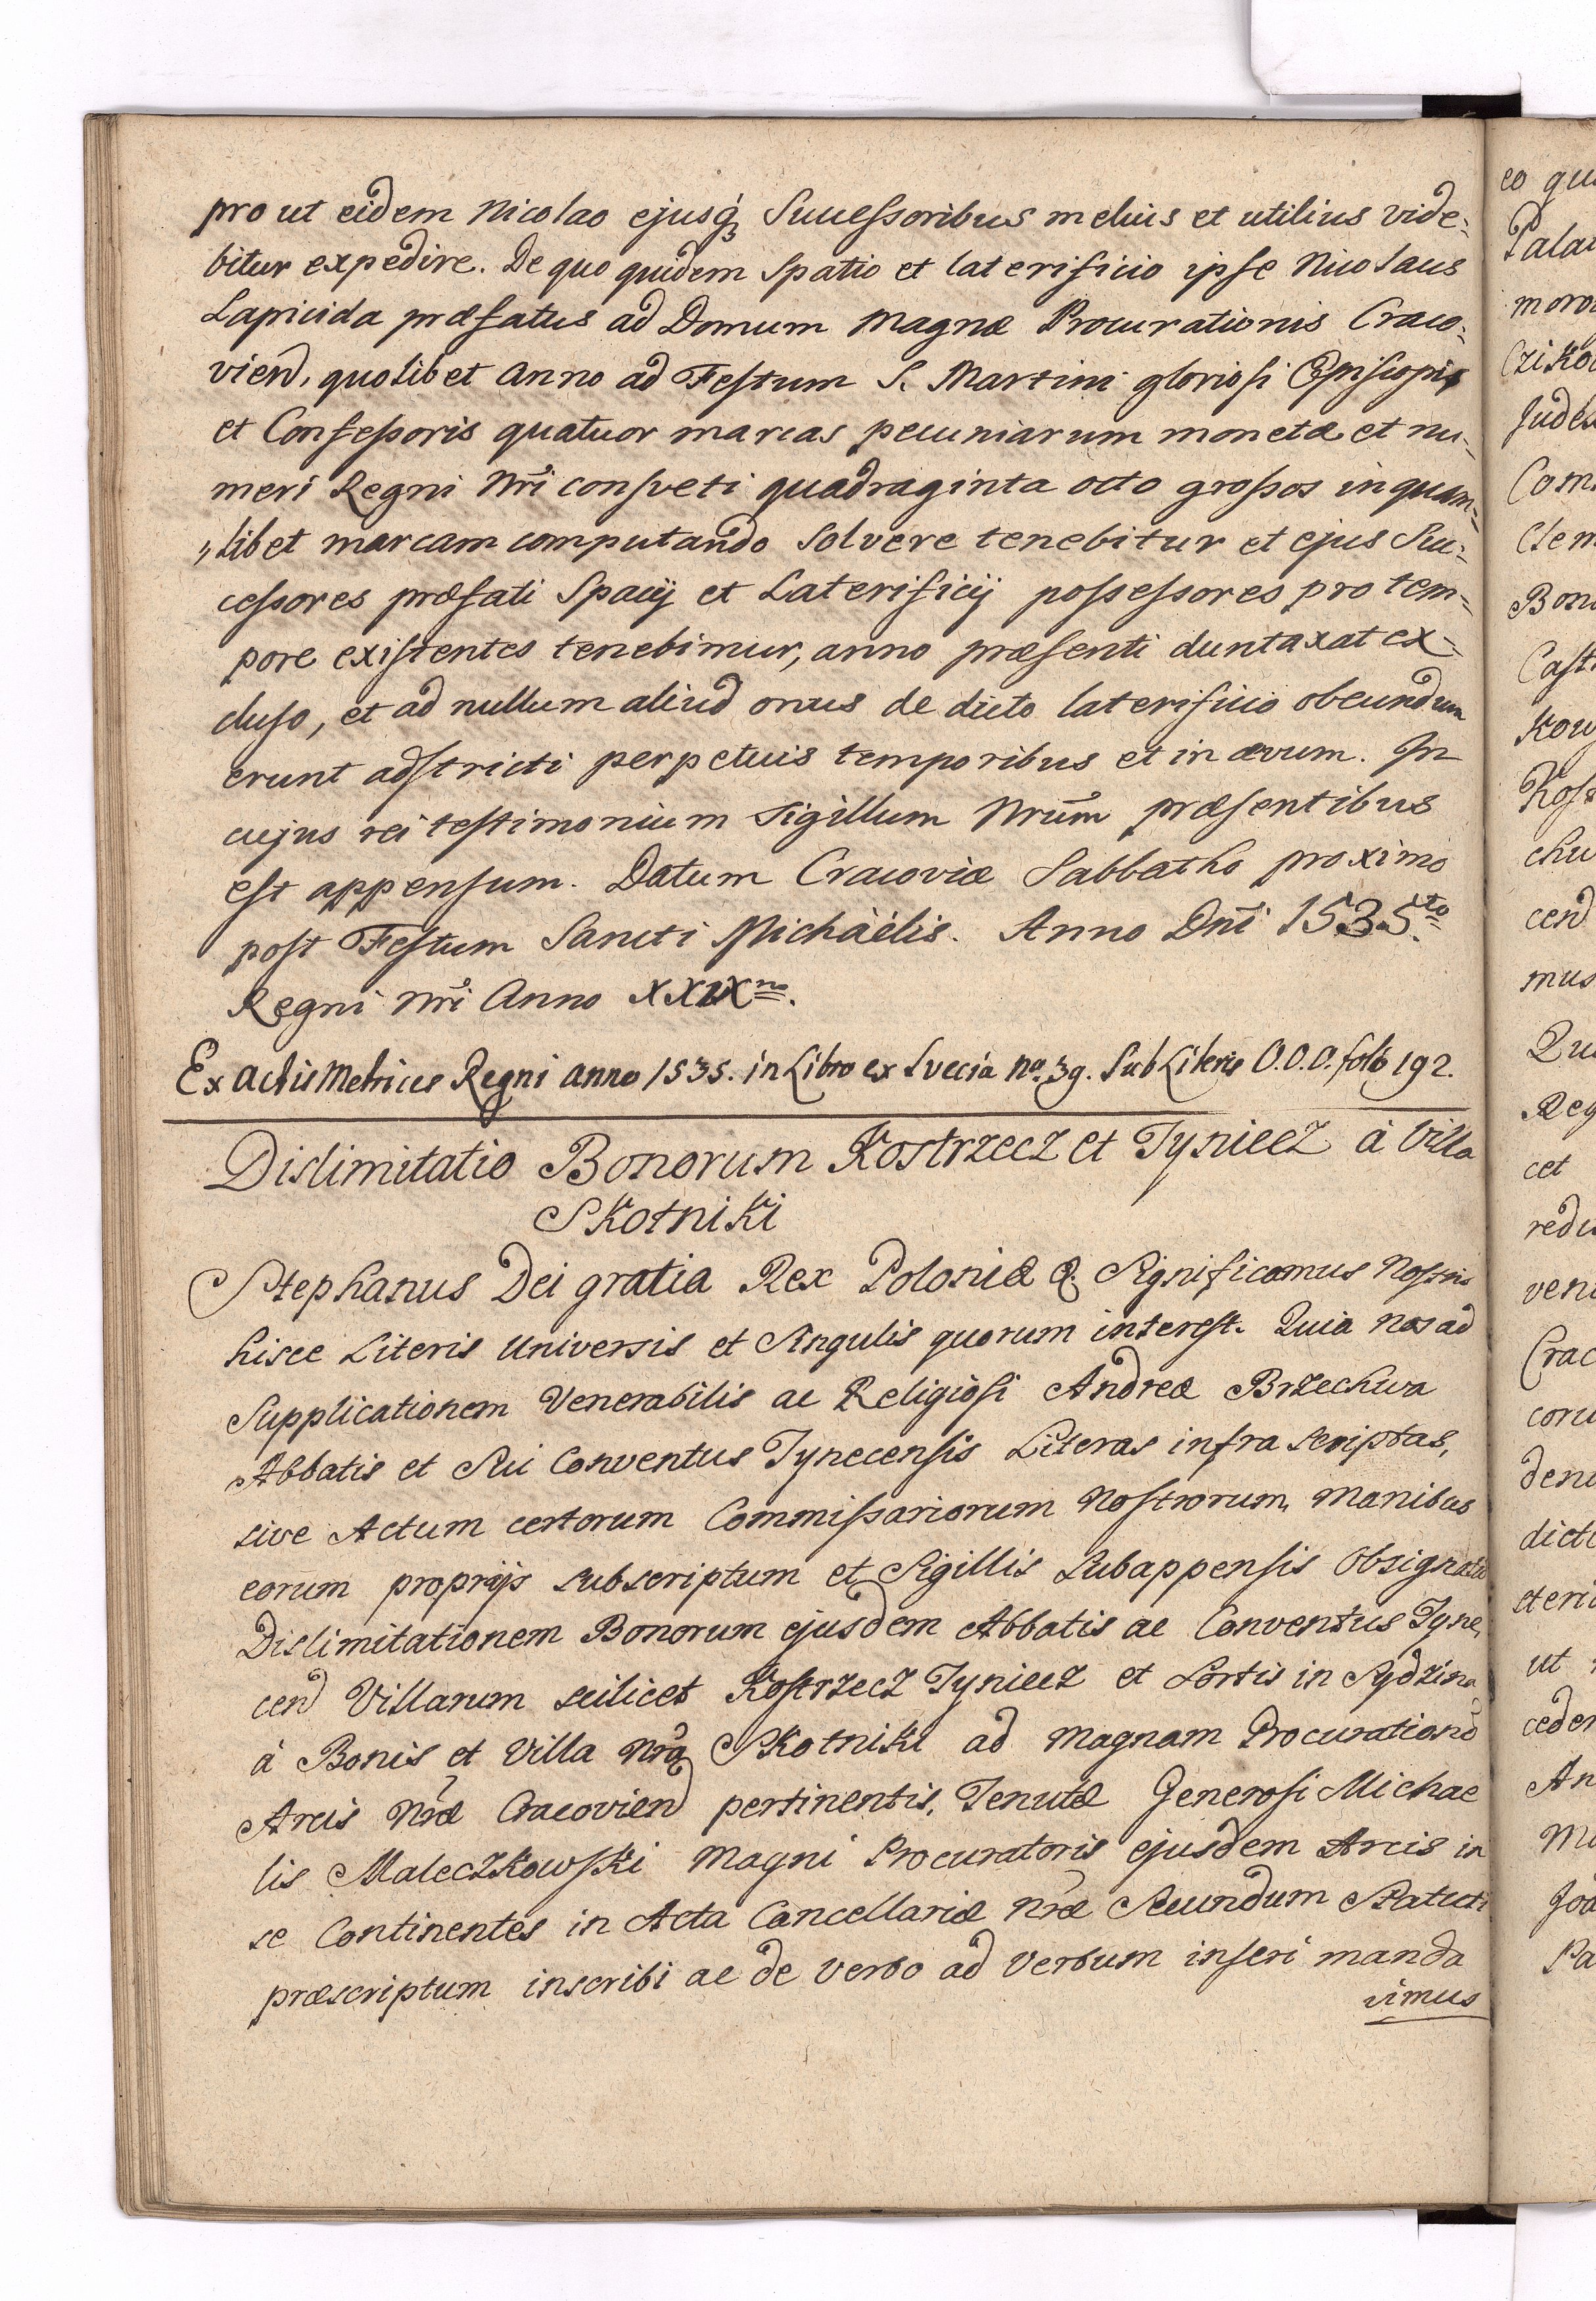 pro ut eidem Nicolao ejusq́3 Successoribus melius et utilius vide=
bitur expedire. De quo quidem Spatio et laterificio ipse Nicolaus
Lapicida præfatus ad Domum Magnæ Procurationis Craco=
vien), quolibet Anno ad Festum S. Martini gloriosi Episcopi
et Confessoris quatuor marcas pecuniarum monetæ et nu=
meri Regni Nri consveti quadraginta octo grossos in quam=
"libet marcam computando solvere tenebitur et ejus Suc=
cessores præfati Spacij et Laterificij possessores pro tem=
pore existentes tenebimur, anno præsenti duntaxat ex=
cluso, et ad nullum aliud onus de dicto laterificio obeundum
erunt adstricti perpetuis temporibus et in ævum. In
cujus rei testimonium Sigillum Nrum præsentibus
est appensum. Datum Cracoviæ Sabbatho proximo
post Festum Sancti Michaëlis. Anno Dni 1535to
Regni Nri Anno XXIXno.
Ex actis Metrices Regni anno 1535. in Libro ex Svecia no. 39. Sub Literis O.O.O. folo 192.
Dislimitatio Bonorum Kostrzecz et Tyniecz à Villa
Skotniki
Stephanus Dei gratia Rex Poloniæ &. Significamus Nostris
hisce Literis Universis et Singulis quorum interest. Quia nos ad
Supplicationem Venerabilis ac Religiosi Andreæ Brzechwa
Abbatis et Sui Conventus Tynecensis Literas infra scriptas,
sive Actum certorum Commissariorum Nostrorum, Manibus
eorum proprijs subscriptum et Sigillis Subappensis Obsignatū
Dislimitationem Bonorum ejusdem Abbatis ac Conventus Tyne,
cen) Villarum scilicet Kostrzecz Tyniecz et Sortis in Sydzina
à Bonis et Villa Nrã Skotniki ad Magnam Procuration)
Arcis Nræ Cracovien) pertinentis, Tenutæ Generosi Michae
lis Maleczkowski Magni Procuratoris ejusdem Arcis in
se Continentes in Acta Cancellariæ Nræ Secundum Statuti
præscriptum inscribi ac de Verbo ad Verbum inseri manda
vimus
eo qu
Pala
moro
Cziko
Jude
Com
Clem
Bon
Cast
Kow
Kos
chu
cen)
mus
Qu
Reg
cet
redu
ven
Crac
coru
den
dict
steri
ut
ceder
An
Mi
Joa
Pa